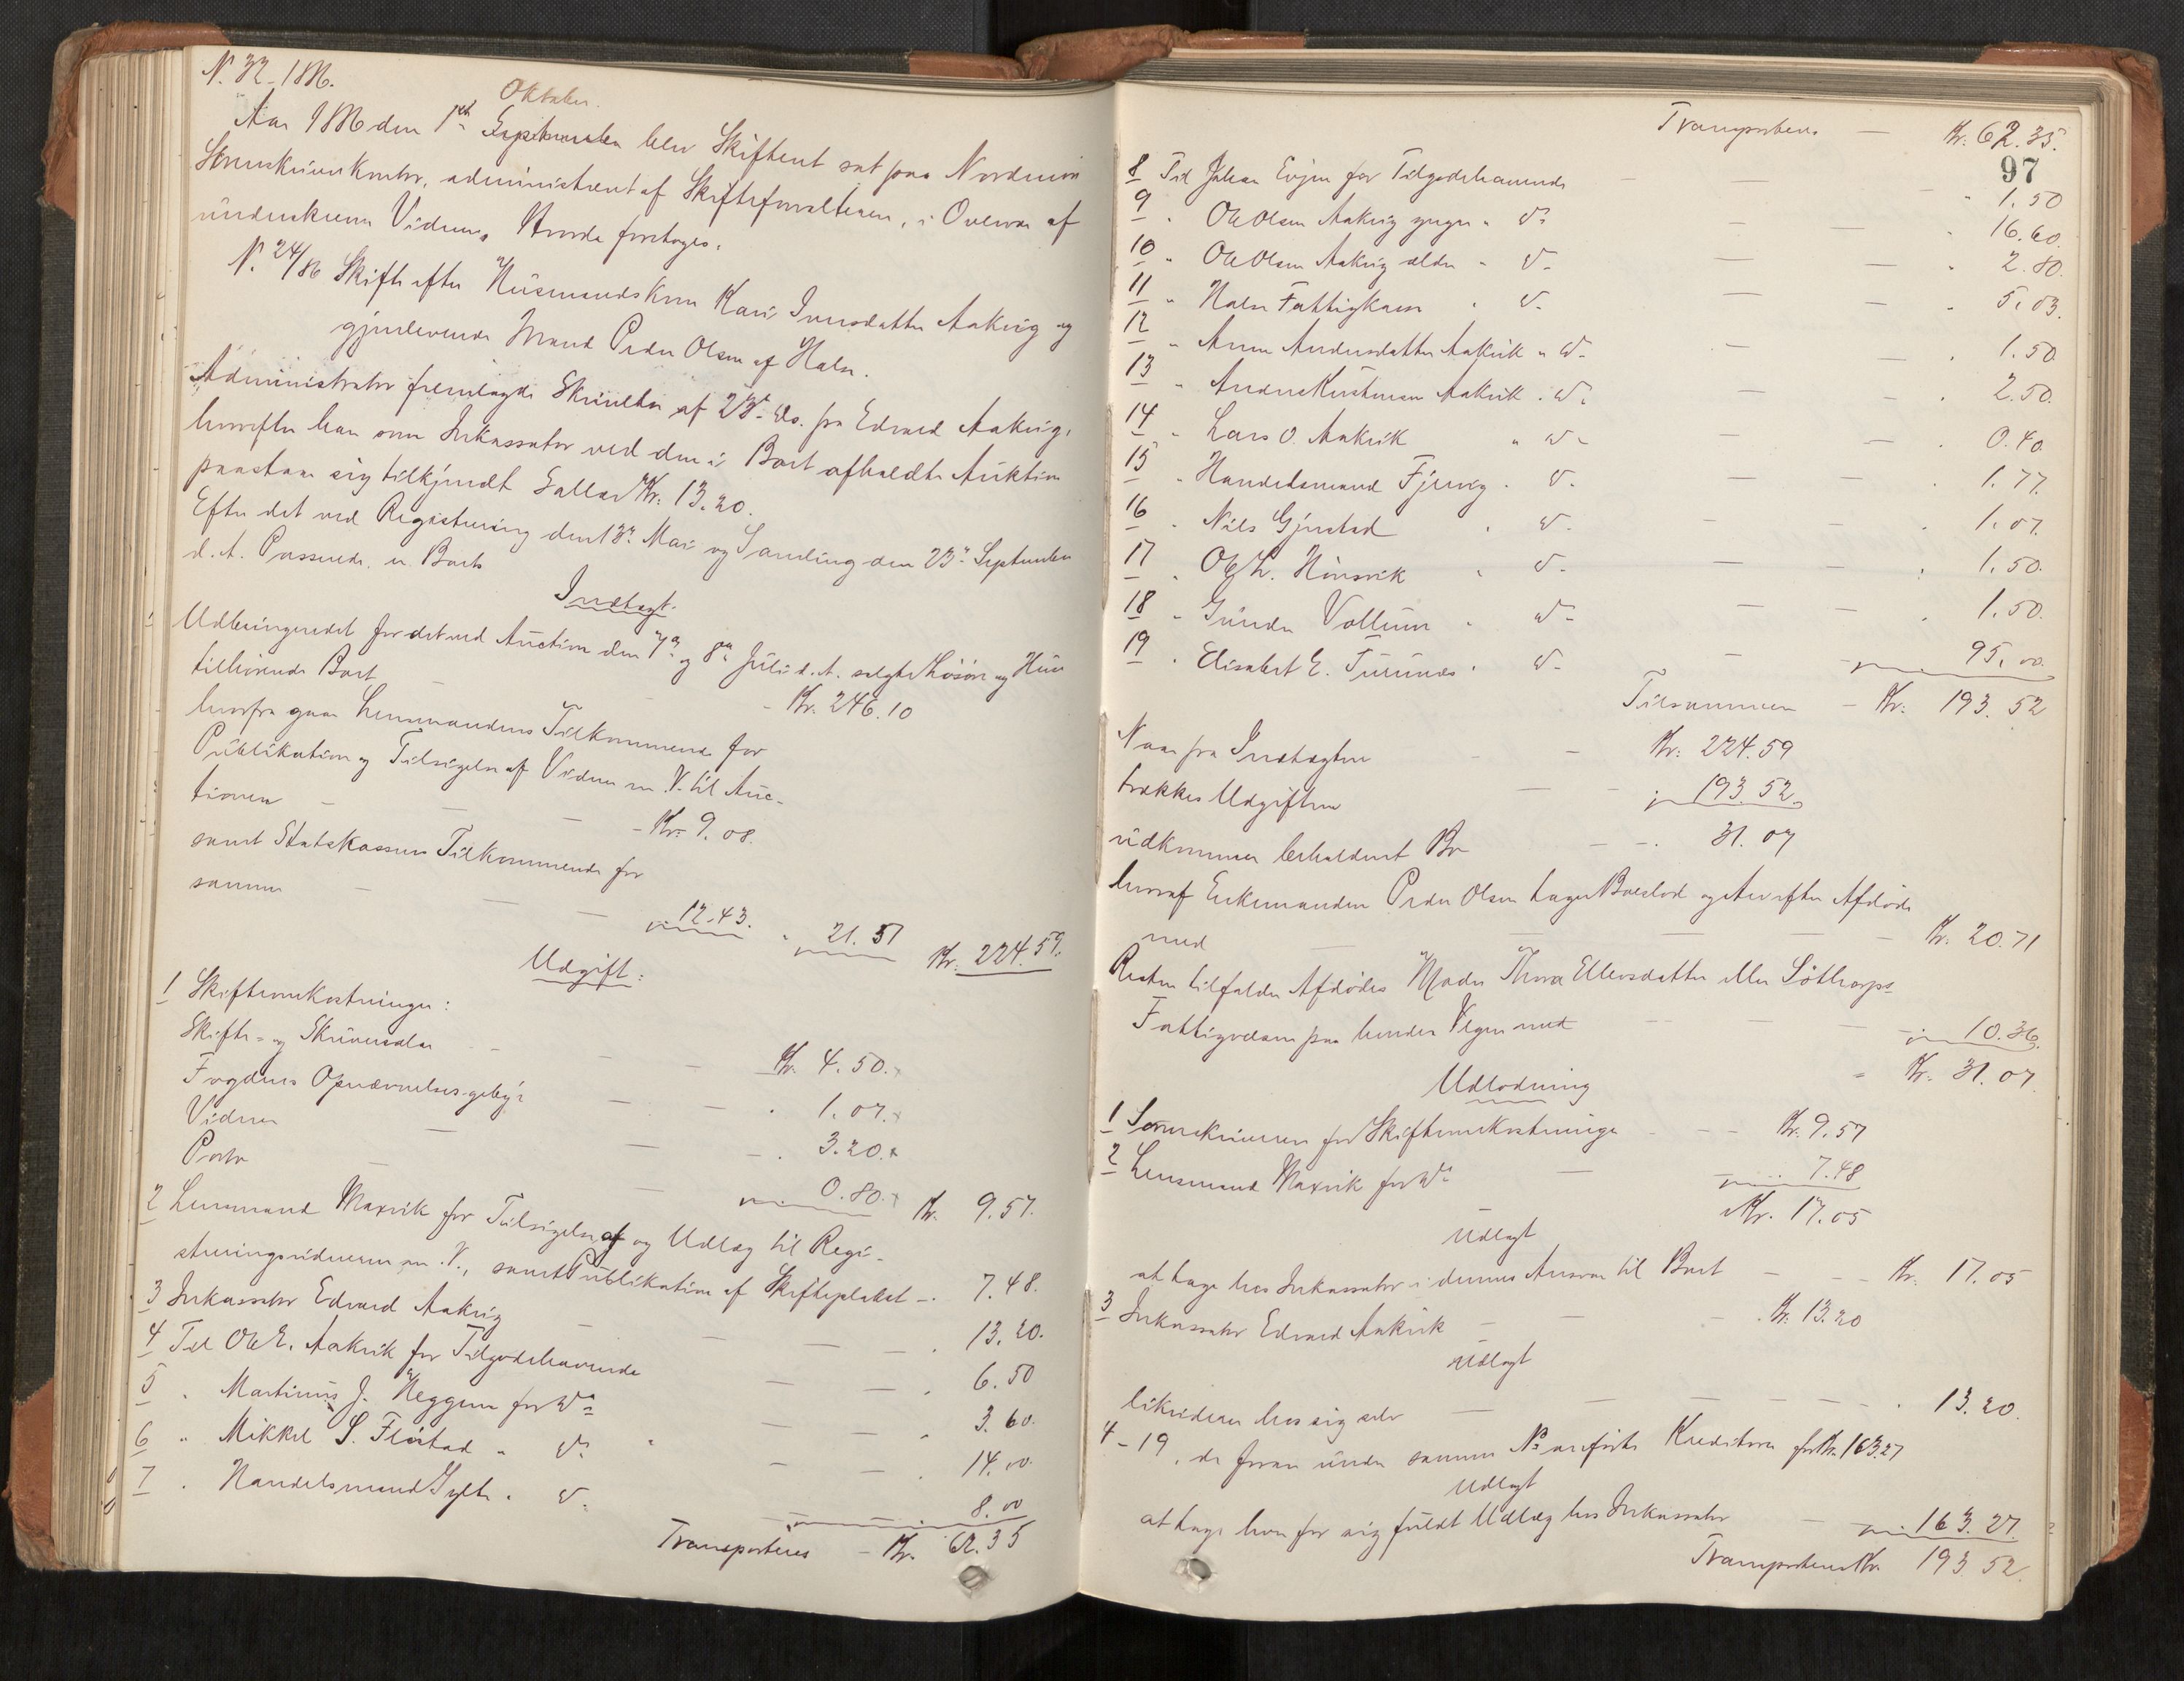 N. 32 - 1886.
Oktober.
Aar 1886 den 1ste September blev Skifteret sat paa Nordmøre
Sorenskriverkontor, administreret af Skifteforvalteren, i Overvær af
underskrevne Vidner. Hvorda foretoges:
N. 24/86 Skifte efter Husmandskone Kari Iversdatter Aakvig og
gjenlevende Mand Peder Olsen af Halse.
Administrator fremlagde Skrivelse af 23de ds. fra Edvard Aakvig,
hvorefter han som Inkassator ved den i Boet afholdte Auktion
paastaar sig tilkjendt Sallær Kr. 13.20.
Efter det ved Registrering den 13de Mai og Samling den 23de September
d. A. Passerede, er Boets
Indtægt.
1 Udbringendet for det ved Auction den 7de og 8de Juli d. A. solgte Løsøre og Huse
tilhørende Boet — - Kr. 246.10
hvorfra gaar Lensmandens Tilkommende for
Publikation og Tilsigelse af Vidner m. V. til Auc-
tionen — — — - Kr. 9.08.
samt Statskassens Tilkommende for
samme — — — 12.43. " 21.51 Kr. 224.59.
Udgift:
1 Skifteomkostninger:
Skifte- og Skriversalær — — Kr. 4.50.
Fogdens Opnævnelses-gebyr — — . 1.07.
Vidner — — - . 3.20.
Porto — — 0.80. Kr. 9.57.
2 Lensmand Maxvik for Tilsigelse af og Udlæg til Regi-
streringsvidnerne m. V., samt Publikation af Skifteplakat - . 7.48.
3 Inkassator Edvard Aakvig — — — . 13.20.
4 Til Ole E. Aakvik for Tilgodehavende — — . 6.50
5 " Martinus J. Heggem for Do — — " 3.60.
6 " Mikkel S. Flostad " Do — — . 14.00.
7 " Handelsmand Gylte . Do 8.00
Transporteres - Kr. 62.35
97
Transporteres — Kr. 62.35.
8 Til Johan Evjen for Tilgodehavende — — " 1.50
9 " Ole Olsen Aakvig yngre " Do — — " 16.60.
10 " Ole Olsen Aakvig ældre " Do — — " 2.80.
11 " Halse Fattigkasse " Do — — " 5.03.
12 " Anne Andersdatter Aakvik " Do — — . 1.50
13 " Anders Kristensen Aakvik . Do — — . 2.50.
14 " Lars O. Aakvik " Do — — . 0.40.
15 " Handelsmand Fjervig . Do — — . 1.77.
16 " Nils Gjerstad " Do — — . 1.07.
17 " Ole L. Hensvik " Do — — . 1.50.
18 " Gunder Vullum " Do — — . 1.50.
19 " Elisabet E. Furunes . Do — — 95.00.
Tilsammen - Kr. 193.52
Naar fra Indtægten — — Kr. 224.59
trækkes Udgiften — — 193.52
udkommer beholdent Bo — — . 31.07
hvoraf Enkemanden Peder Olsen tager Boeslod og Arv efter Afdøde
med — — — — — Kr. 20.71
Resten tilfalder Afdødes Moder Thora Ellevsdatter eller Søttrops
Fattigvæsen paa hendes Vegne med — — — 10.36.
- Kr. 31.07.
Udlodning
1 Sorenskriveren for Skifteomkostninger — - - Kr. 9.57
2 Lensmand Maxvik for Do — 7.48
Kr. 17.05
Udlagt
at tage hos Inkassator i dennes Ansvar til Boet — - - Kr. 17.05
3 Inkassator Edvard Aakvik — — - . Kr. 13.20
Udlagt
likviderer hos sig selv — — — — — . 13.20.
4-19, de foran under samme No anførte Kreditorer for Kr. 163.27
Udlagt
at tage hver for sig fuldt Udlæg hos Inkassator — 163.27.
Transporteres Kr. 193.52.